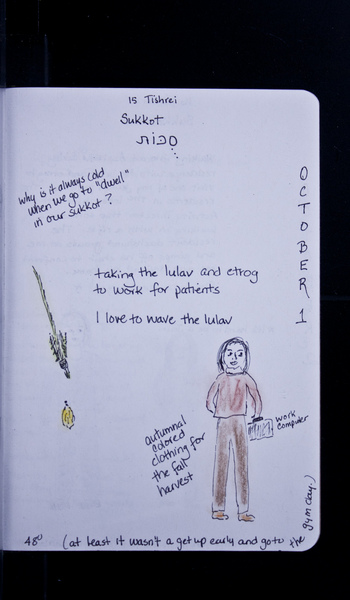 15 Tishrei
Sukkot
סכות
why is it always cold
when we go to "dwell"
in our sukkot?
OCTOBER 1
taking the lulav and etrog
to work for patients
I love to wave the lulav
autumnal
colored
clothing for
the fall
harvest
work
computer
48° (at least it wasn't a get up early and go to the
gym day.)